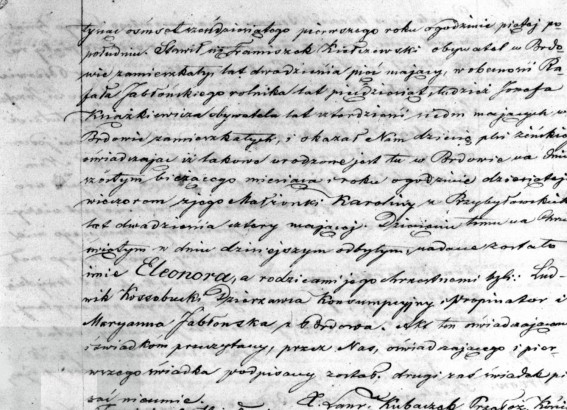 tysiąc ośmset sześdziesiątego pierwszego roku o godzinie piątej po
południu. Stawił się Franciszek Kiełczewski obywatel w Brdo-
wie zamieszkały, lat dwadzieścia pięć mający, w obecności Ra-
fała Jabłońskiego rolnika lat pięćdziesiąt, tudzież Józefa
Książkiewicza obywatela lat czterdzieści siedm mających, w
Brdowie zamieszkałych, i okazał Nam dziecię płci żeńskiej
oświadczając iż takowe urodzone jest tu w Brdowie na dniu
szóstym bieżącego miesiąca i roku o godzinie dziesiątej
wieczorem z jego Małżonki Karoliny z Przybyłowskich
lat dwadzieścia cztery mającej. Dziecięciu temu na Chrzcie
świętym w dniu dzisiejszym odbytym, nadane zostało
imie Eleonora, a rodzicami jego chrzestnemi byli: Lud-
wik Kossobucki Dzierżawca Konsumpcyjny i Propinator i
Maryanna Jabłońska z Brdowa. Akt ten oświadczającemu
i świadkom przeczytany, przez Nas, oświadczającego i pier-
wszego świadka podpisany został. drugi zaś świadek pi-
sać nieumie.
X. Laur. Kubaczek Proboszcz